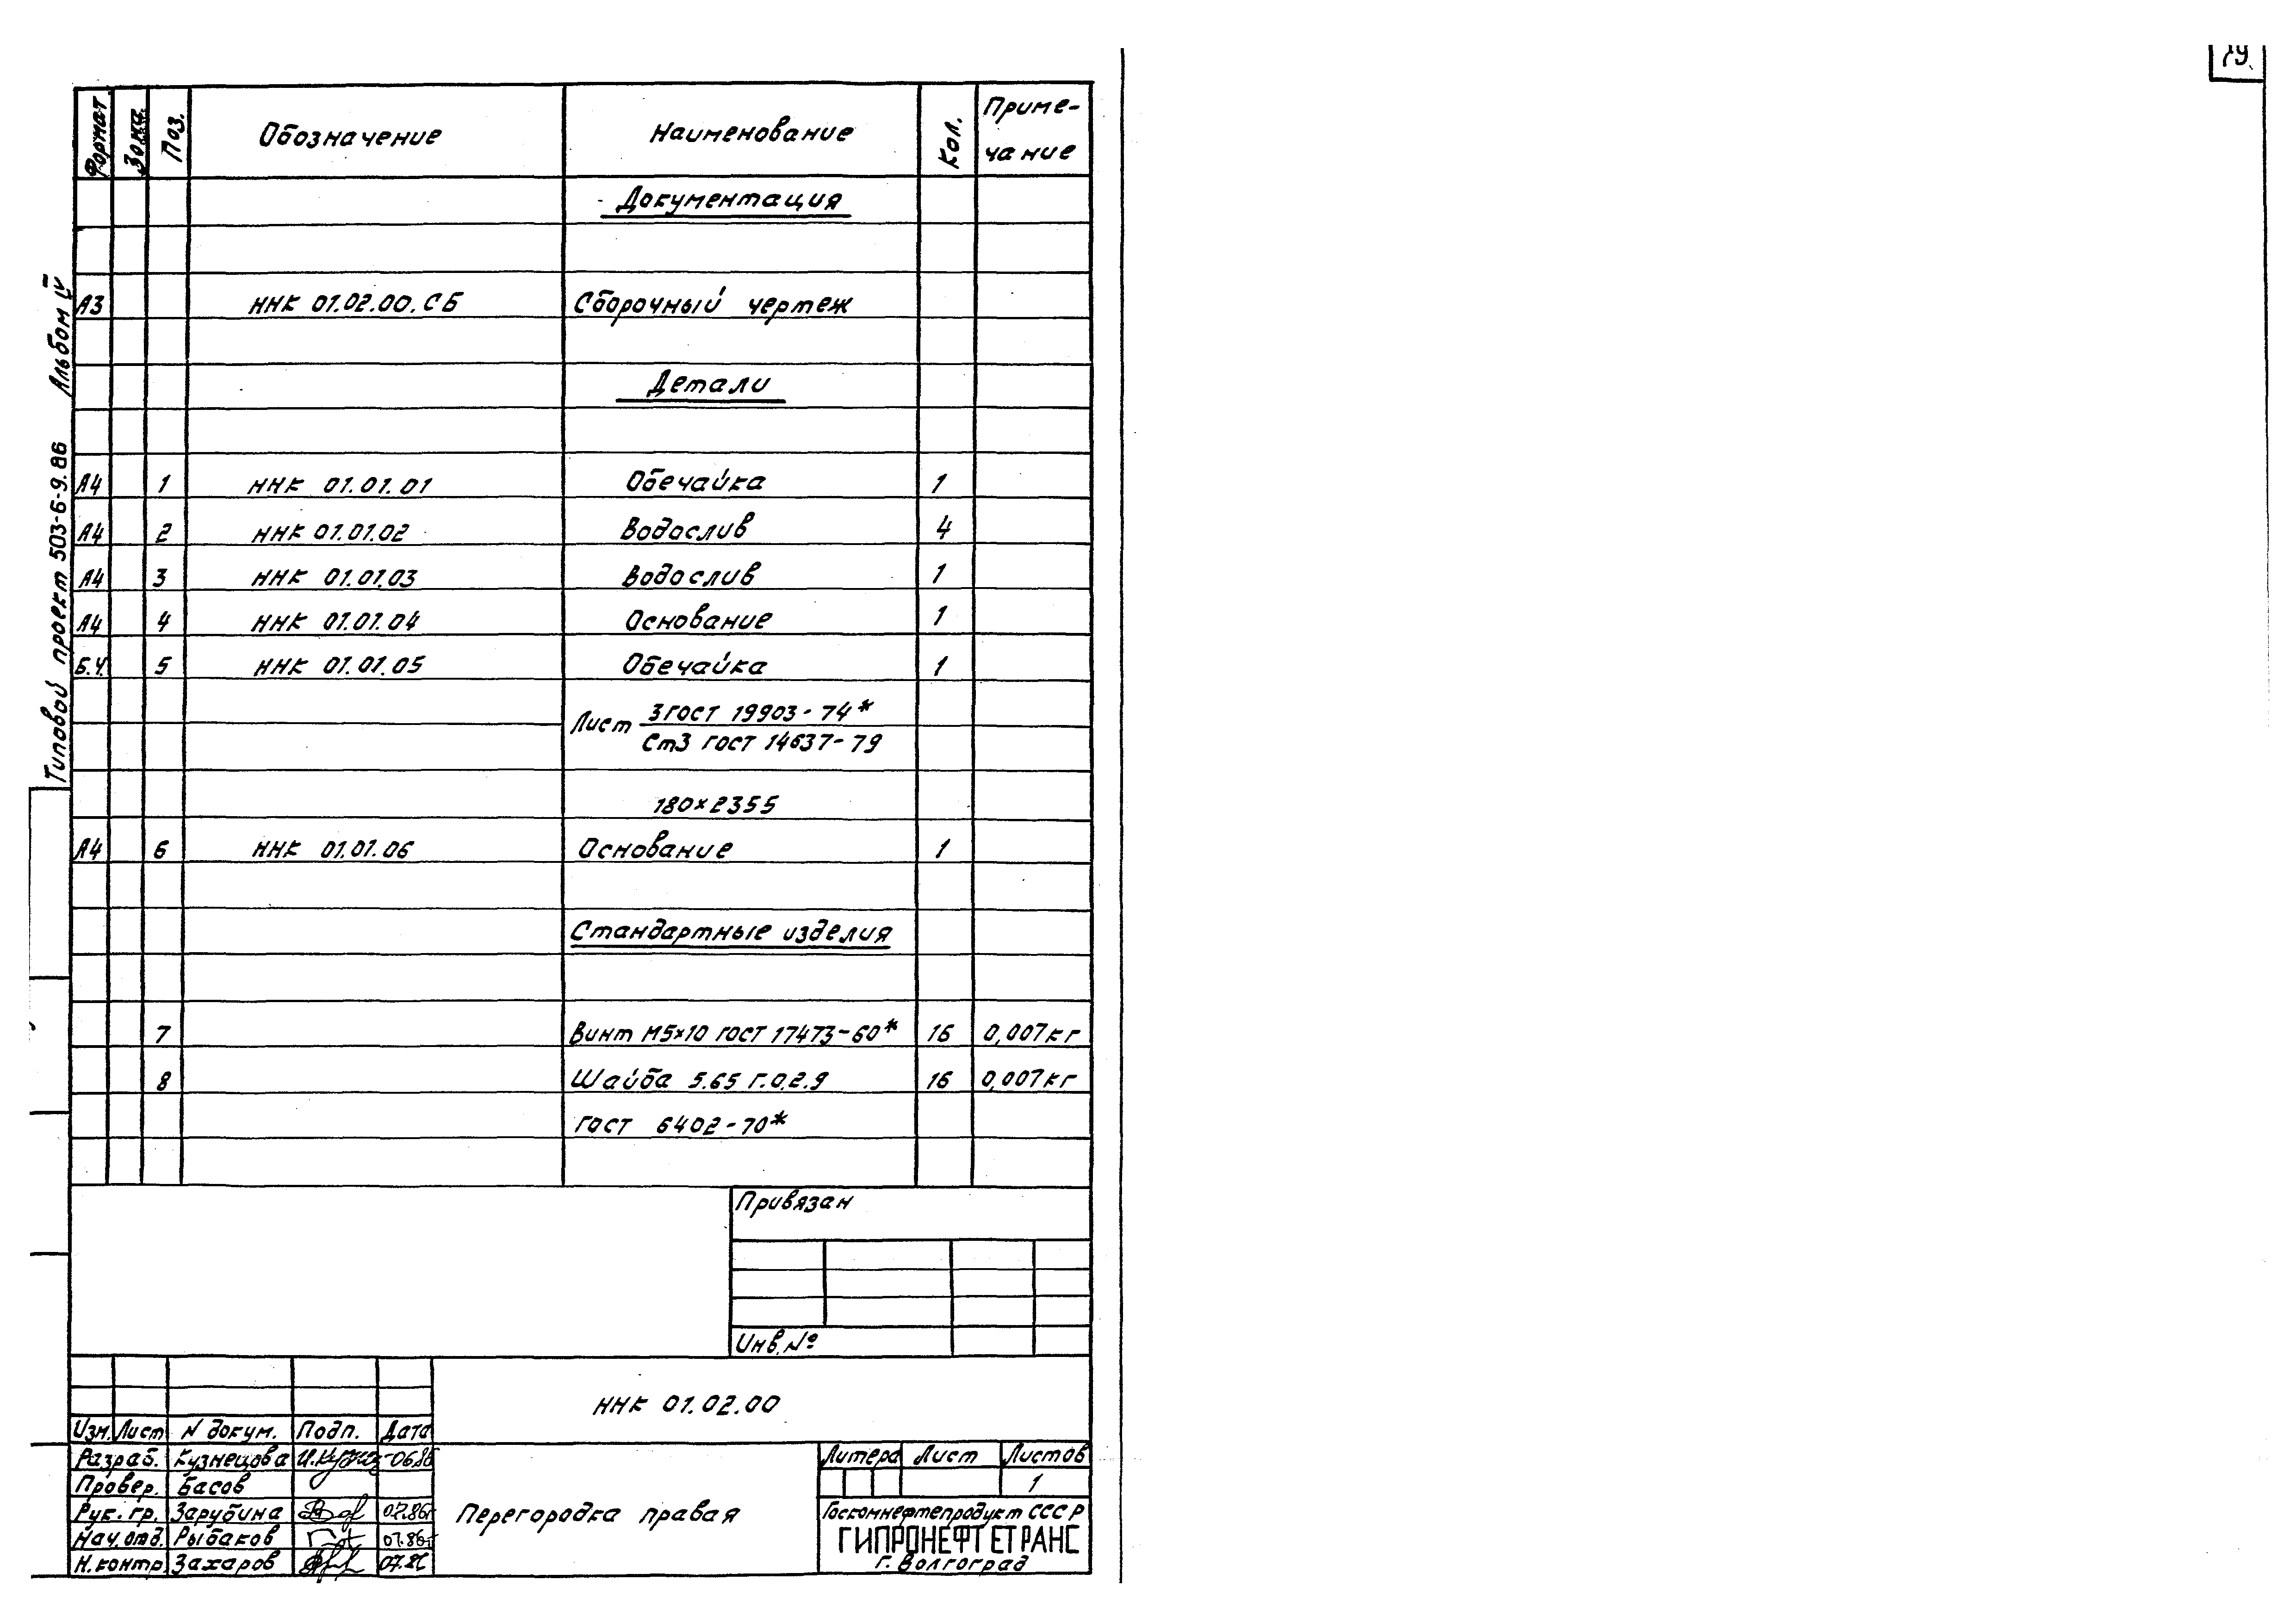 79
Формат Зона Поз. Обозначение Наименование Кол. Приме-
чание
Документация
А3 ННК 01.02.00.СБ Сборочный чертеж
Детали
А4 1 ННК 01.01.01 Обечайка 1
А4 2 ННК 01.01.02 Водослив 4
А4 3 ННК 01.01.03 Водослив 1
А4 4 ННК 01.01.04 Основание 1
Б.Ч. 5 ННК 01.01.05 Обечайка 1
Лист 3 ГОСТ 19903-74*
Ст3 ГОСТ 14637-79
180×2355
А4 6 ННК 01.01.06 Основание 1
Стандартные изделия
7 Винт М5×10 ГОСТ 17473-60* 16 0,007кг
8 Шайба 5.65 Г.0.2.9 16 0,007кг
ГОСТ 6402-70*
Типовой проект 503-6-9.86 Альбом IV
Привязан
Инв.№
ННК 01.02.00
Изм. Лист N докум. Подп. Дата
Разраб. Кузнецова 06.86
Провер. Басов
Рук.гр. Зарубина 07.86г
Нач.отд. Рыбаков 07.86г
Н.контр. Захаров 07.86
Перегородка правая
Литера Лист Листов
1
Госкомнефтепродукт СССР
ГИПРОНЕФТЕТРАНС
г. Волгоград